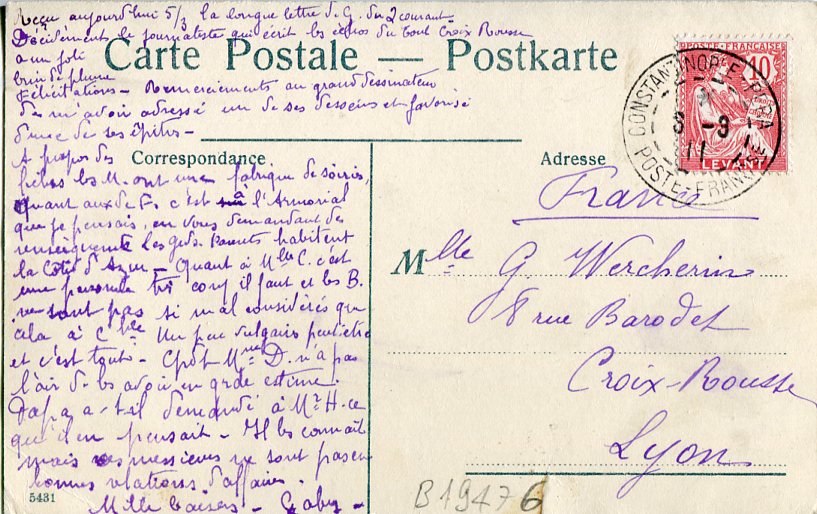 Reçu aujourd'hui 5/3 la longue lettre de G. du 2 courant-
Décidément le journaliste qui écrit les échos du tout Croix Rousse
a un joli
brin de plume
Félicitations - Remerciements au grand dessinateur
de m'avoir adressé un de ses dessins et favorisé
d'une de ses épitres -
Carte Postale — Postkarte
Correspondance
A propos des
frères les M. ont une fabrique de soieries,
Quant aux de F. c'est à l'Armorial
que je pensais, en vous demandant des
renseignements Les gds. Parents habitent
la Côte d'Azur - Quant à Mlle C. c'est
une personne très comj il faut et les B.
ne sont pas si mal considérés que
cela à Cple Un peu vulgaires peut être
et c'est tout - Mme D. n'a pas
l'air de les avoir en grde estime.
Papa a-t-il demandé à Mr H. ce
qu'il en pensait - Il les connait
mais ces messieurs ne sont pas en
bonnes relations d'affaires
Mille baisers - Gaby -
5431
Adresse
France
Mlle G. Wercherin
8 rue Barodet
Croix-Rousse
Lyon
B19476
POSTE FRANÇAISE
10
LEVANT
CONSTANTINOPLE-PERA
6 -3
11
POSTE-FRANÇAISE